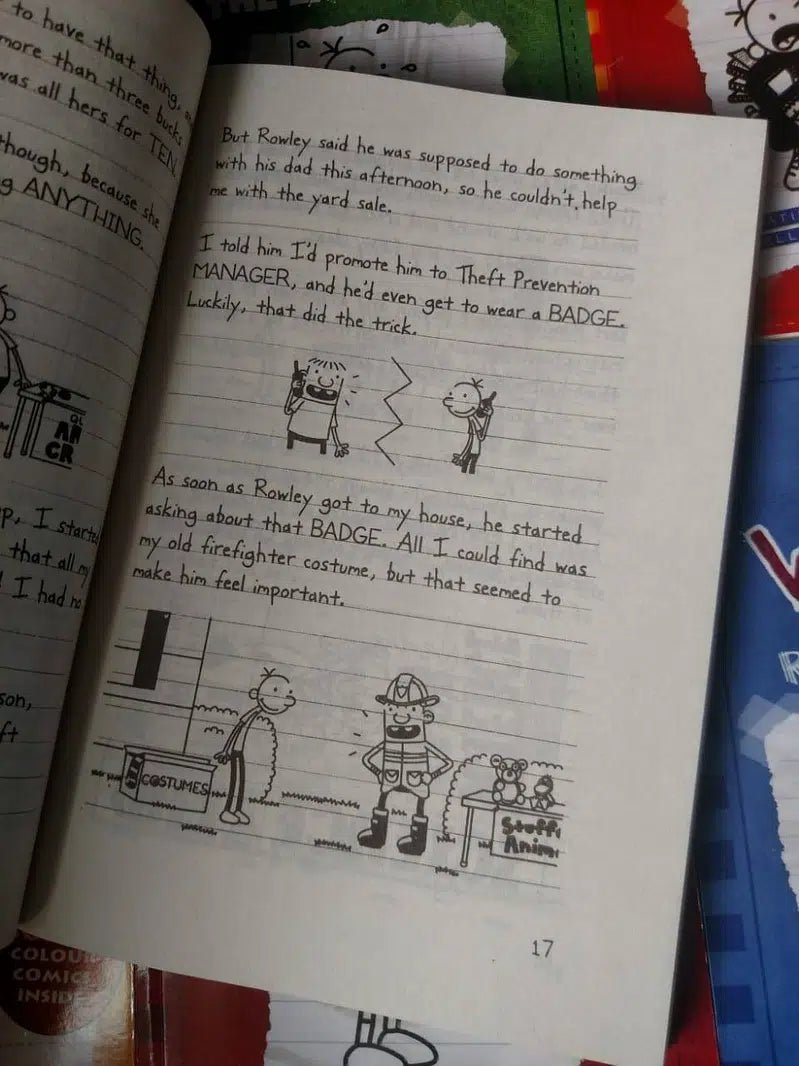 to have that thing,
more than three bucks
was all hers for TEN.
though, because she
ANYTHING.
I started
that all my
I had no
But Rowley said he was supposed to do something
with his dad this afternoon, so he couldn't help
me with the yard sale.
I told him I'd promote him to Theft Prevention
MANAGER, and he'd even get to wear a BADGE.
Luckily, that did the trick.
As soon as Rowley got to my house, he started
asking about that BADGE. All I could find was
my old firefighter costume, but that seemed to
make him feel important.
COSTUMES
Stuff
Anim
17
COLOU
COMICS
INSIDE